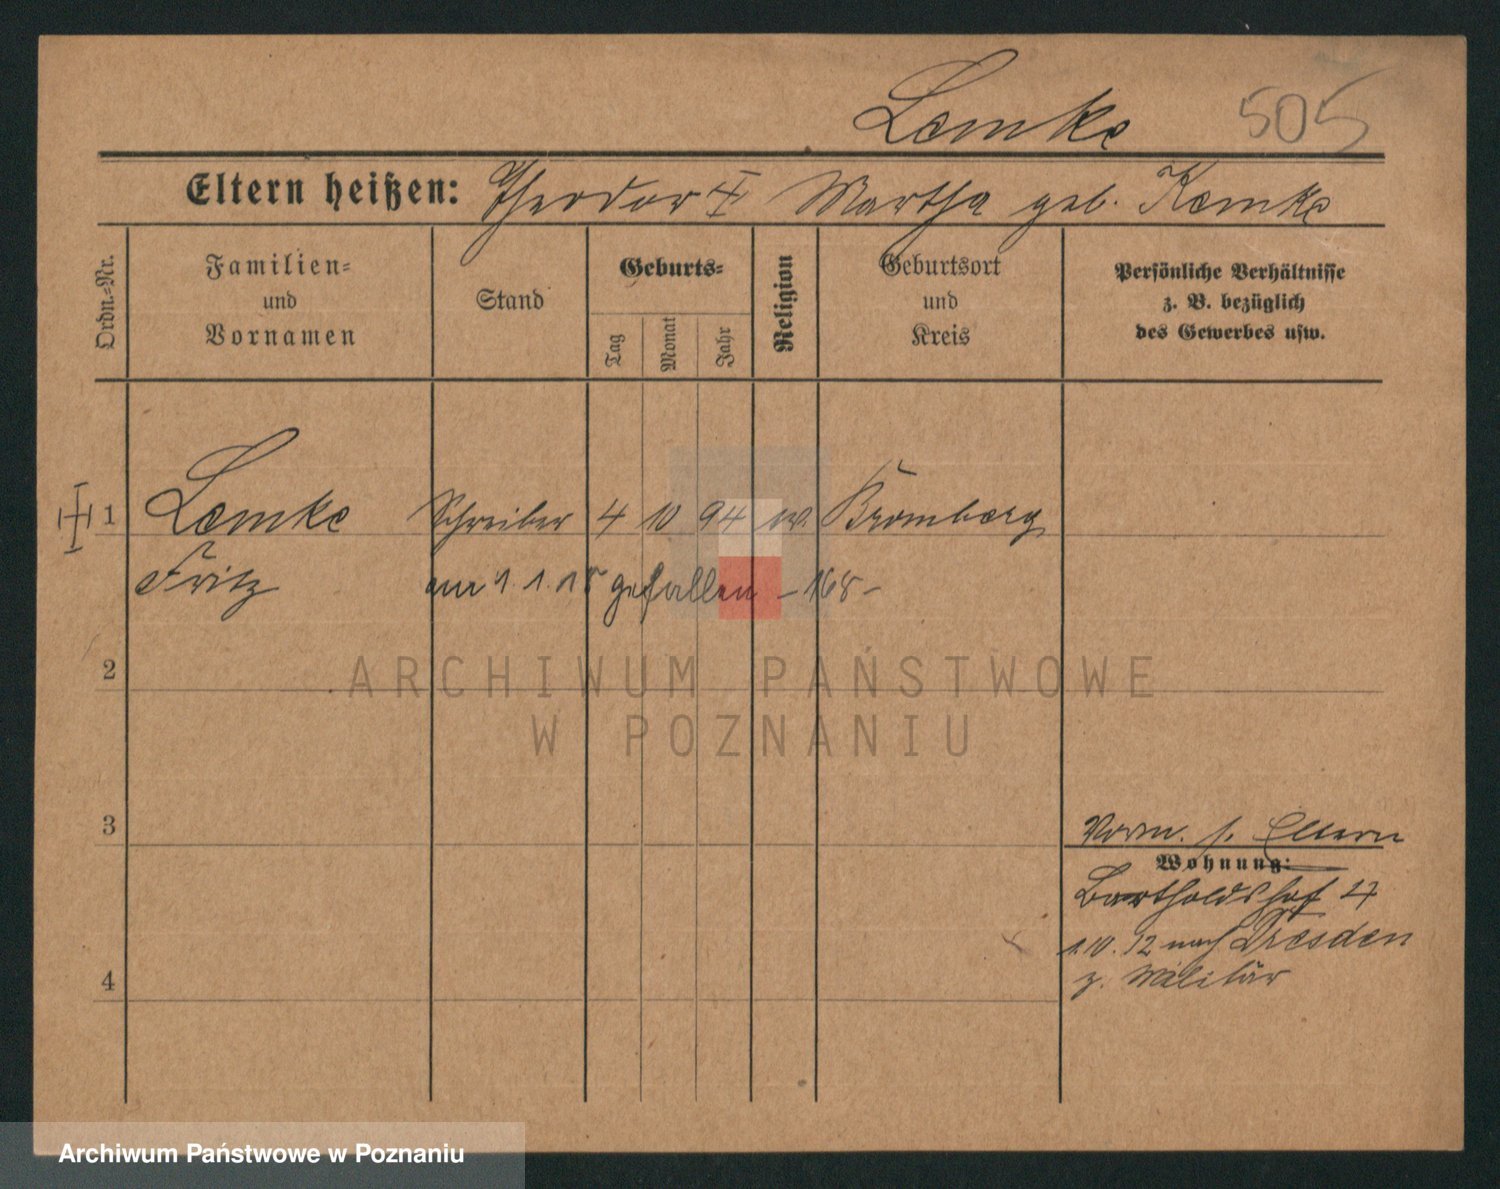 Lemke 505
Eltern heißen: Theodor ☩ Martha geb. Kemke
Ordn.-Nr.
Familien-
und
Vornamen
Stand
Geburts-
Tag
Monat
Jahr
Religion
Geburtsort
und
Kreis
Persönliche Verhältnisse
z. B. bezüglich
des Gewerbes usw.
☩ 1 Lemke Schreiber 4 10 94 ev. Bromberg
Fritz am 1.1.15 gefallen - 168 -
2
ARCHIWUM PAŃSTWOWE
W POZNANIU
3
Vorm. s. Eltern
Wohnung:
Bartholdshof 4
1.10.12 nach Dresden
z. Militär
4
Archiwum Państwowe w Poznaniu